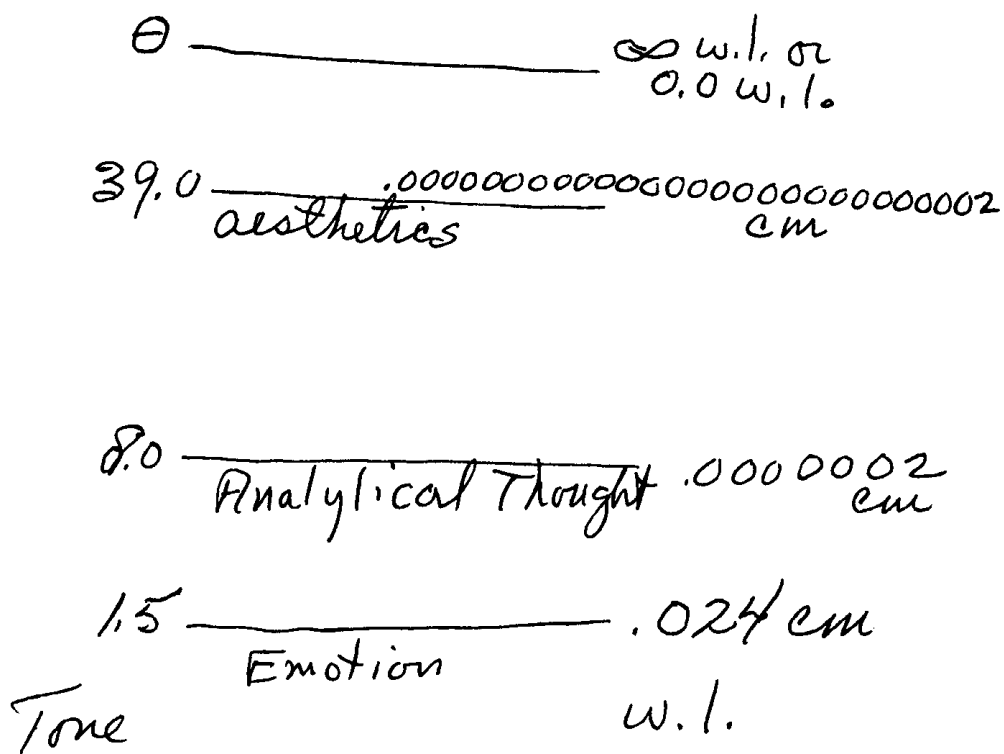 θ ∞ w.l. or
0.0 w.l.
39.0 .00000000000000000000000002
aesthetics cm
8.0 .0000002
Analytical Thought cm
1.5 .024 cm
Emotion
Tone w.l.